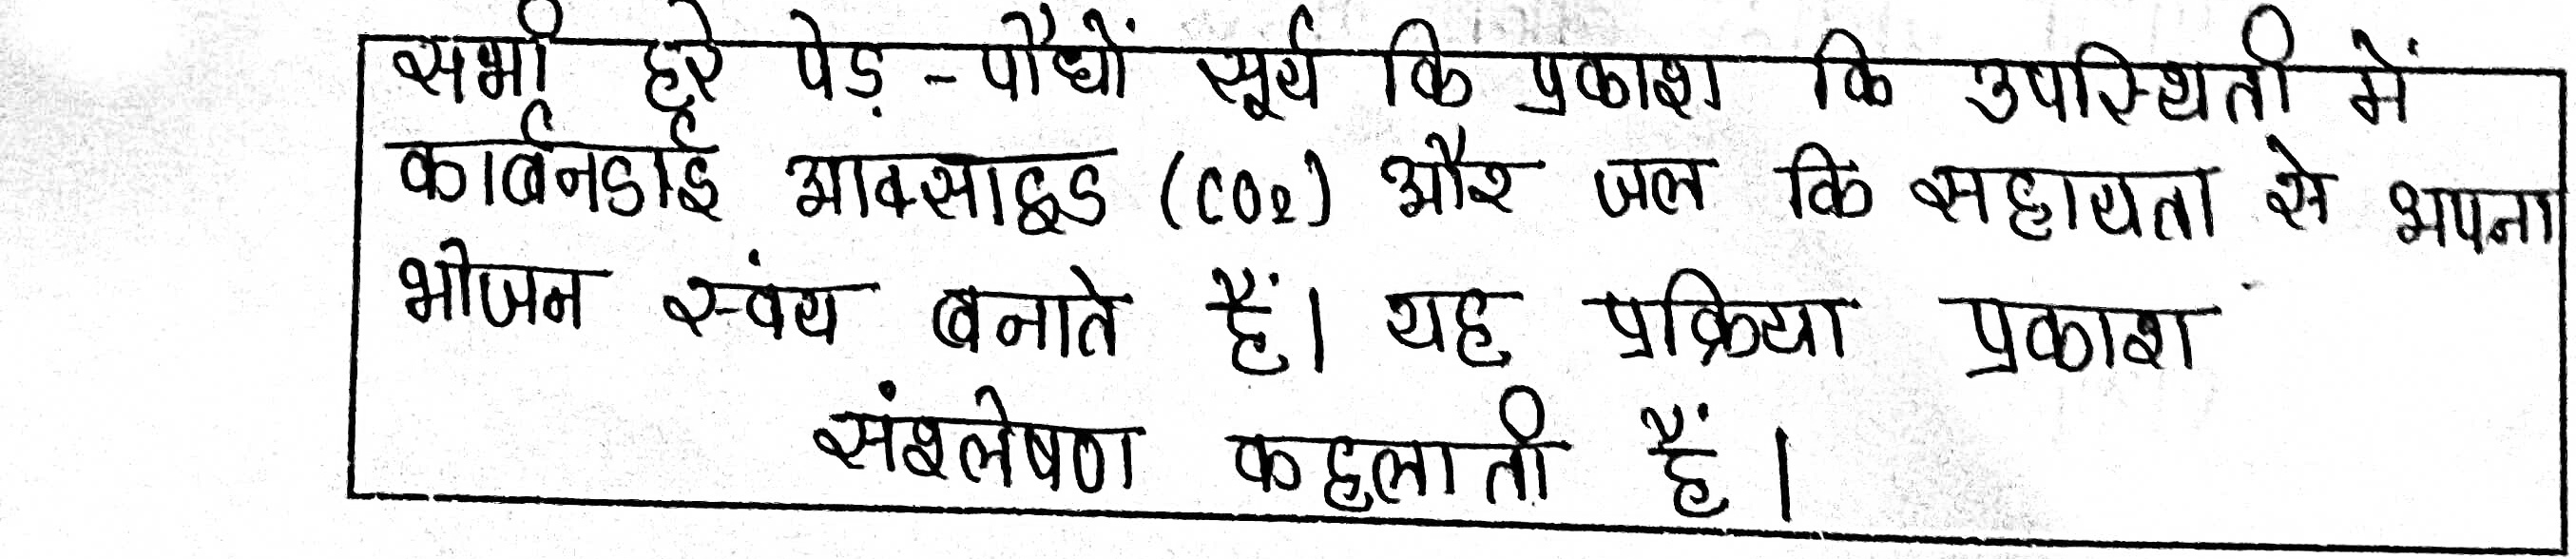 सभी हरे पेड़ -पौधों सूर्य कि प्रकाश कि उपस्थिती में
कार्बनडाई आक्साइड (CO2) और जल कि सहायता से अपना
भोजन स्वंय बनाते हैं। यह प्रक्रिया प्रकाश
संश्लेषण कहलाती हैं।